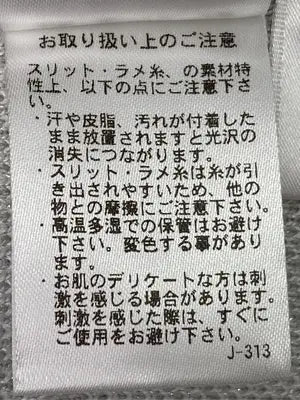 お取り扱い上のご注意
スリット・ラメ糸、の素材特
性上、以下の点にご注意下さ
い。
・汗や皮脂、汚れが付着した
まま放置されますと光沢の
消失につながります。
・スリット・ラメ糸は糸が引
き出されやすいため、他の
物との摩擦にご注意下さい。
・高温多湿での保管はお避け
下さい。変色する事があり
ます。
・お肌のデリケートな方は刺
激を感じる場合があります。
刺激を感じた際は、すぐに
ご使用をお避け下さい。
J-313